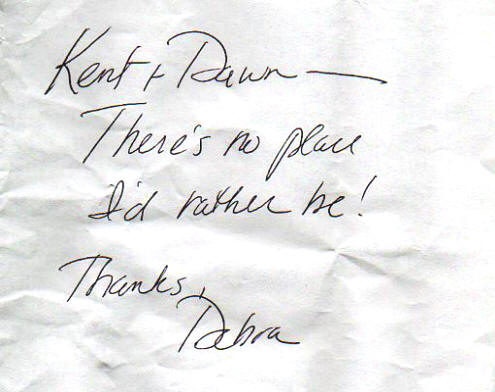 Kent + Dawn —
There's no place
I'd rather be!
Thanks,
Debra